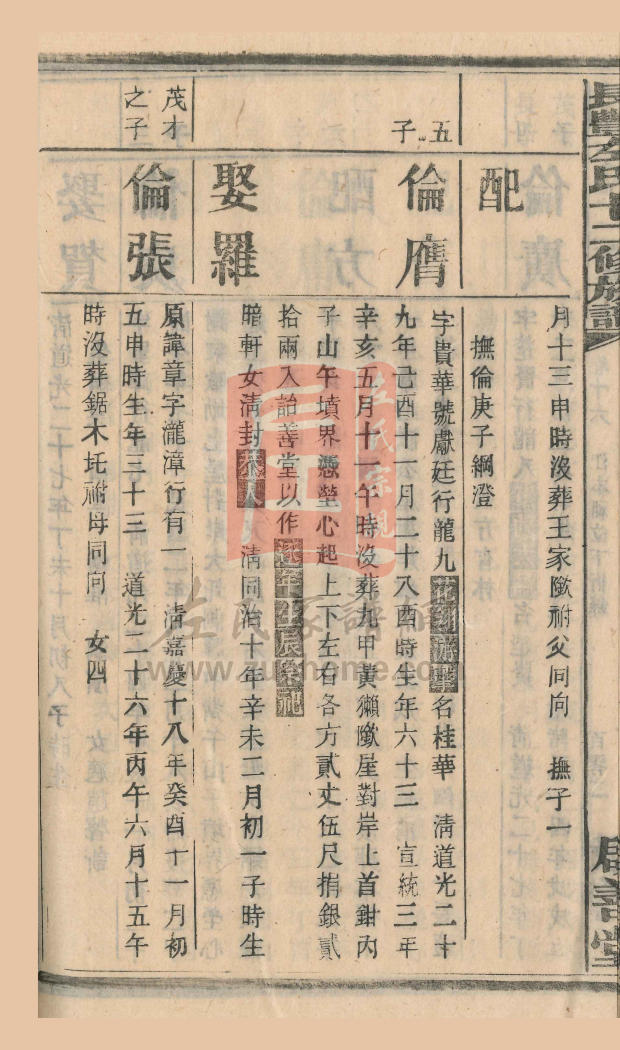 長豐左氏七二修族譜
啟善堂
配
月十三申時沒葬王家㘓祔父同向 撫子一
撫倫庚子綱澄
五子
倫膺
字貴華號獻廷行龍九花翎游擊名桂華 清道光二十
九年己酉十一月二十八酉時生年六十三 宣統三年
辛亥五月十一午時沒葬九甲黃獺㘓屋對岸上首鉗丙
子山午墳界憑塋心起上下左右各方貳丈伍尺捐銀貳
拾兩入詒善堂以作逐年生辰祭祀
娶羅
暗軒女淸封恭人 淸同治十年辛未二月初一子時生
茂才之子
倫張
原諱章字瀧漳行有一 淸嘉慶十八年癸酉十一月初
五申時生年三十三 道光二十六年丙午六月十五午
時沒葬鋸木圫祔母同向 女四
左氏宗親
左氏家譜網
www.zuohome.com